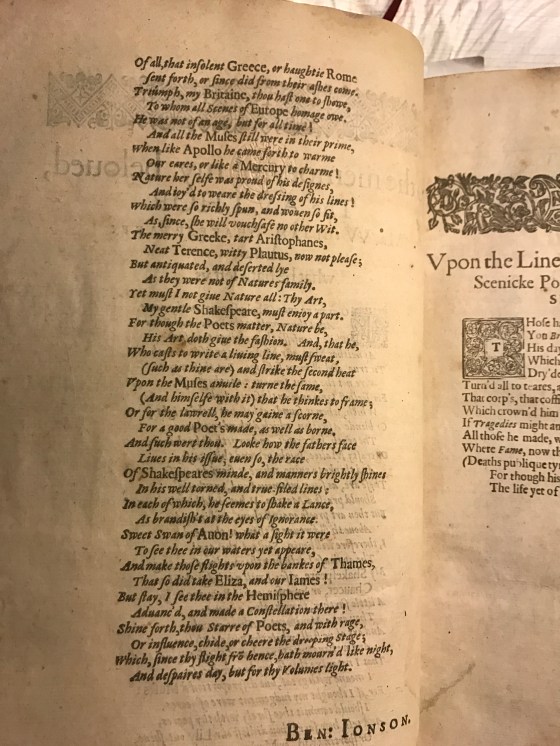 Of all, that insolent Greece, or haughtie Rome
sent forth, or since did from their ashes come.
Triumph, my Britaine, thou hast one to showe,
To whom all Scenes of Europe homage owe.
He was not of an age, but for all time!
And all the Muses still were in their prime,
when like Apollo he came forth to warme
Our eares, or like a Mercury to charme!
Nature her selfe was proud of his designes,
And ioy'd to weare the dressing of his lines!
which were so richly spun, and wouen so fit,
As, since, she will vouchsafe no other Wit.
The merry Greeke, tart Aristophanes,
Neat Terence, witty Plautus, now not please;
But antiquated, and deserted lye
As they were not of Natures family.
Yet must I not giue Nature all: Thy Art,
My gentle Shakespeare, must enioy a part.
For though the Poets matter, Nature be,
His Art doth giue the fashion. And, that he,
Who casts to write a liuing line, must sweat,
(such as thine are) and strike the second heat
Vpon the Muses anuile: turne the same,
(And himselfe with it) that he thinkes to frame;
Or for the lawrell, he may gaine a scorne,
For a good Poet's made, as well as borne.
And such wert thou. Looke how the fathers face
Liues in his issue, euen so, the race
Of Shakespeares minde, and manners brightly shines
In his well torned, and true-filed lines:
In each of which, he seemes to shake a Lance,
As brandish't at the eyes of Ignorance.
Sweet Swan of Auon! what a sight it were
To see thee in our waters yet appeare,
And make those flights vpon the bankes of Thames,
That so did take Eliza, and our Iames!
But stay, I see thee in the Hemisphere
Aduanc'd, and made a Constellation there!
Shine forth, thou Starre of Poets, and with rage,
Or influence, chide, or cheere the drooping Stage;
Which, since thy flight frō hence, hath mourn'd like night,
And despaires day, but for thy Volumes light.
BEN: IONSON.
Vpon the Line
Scenicke Po
S
THose h
You Br
His da
Which
Dry'de
Turn'd all to teares, a
That corp's, that coffi
Which crown'd him
If Tragedies might an
All those he made, w
Where Fame, now th
(Deaths publique ty
For though his
The life yet of